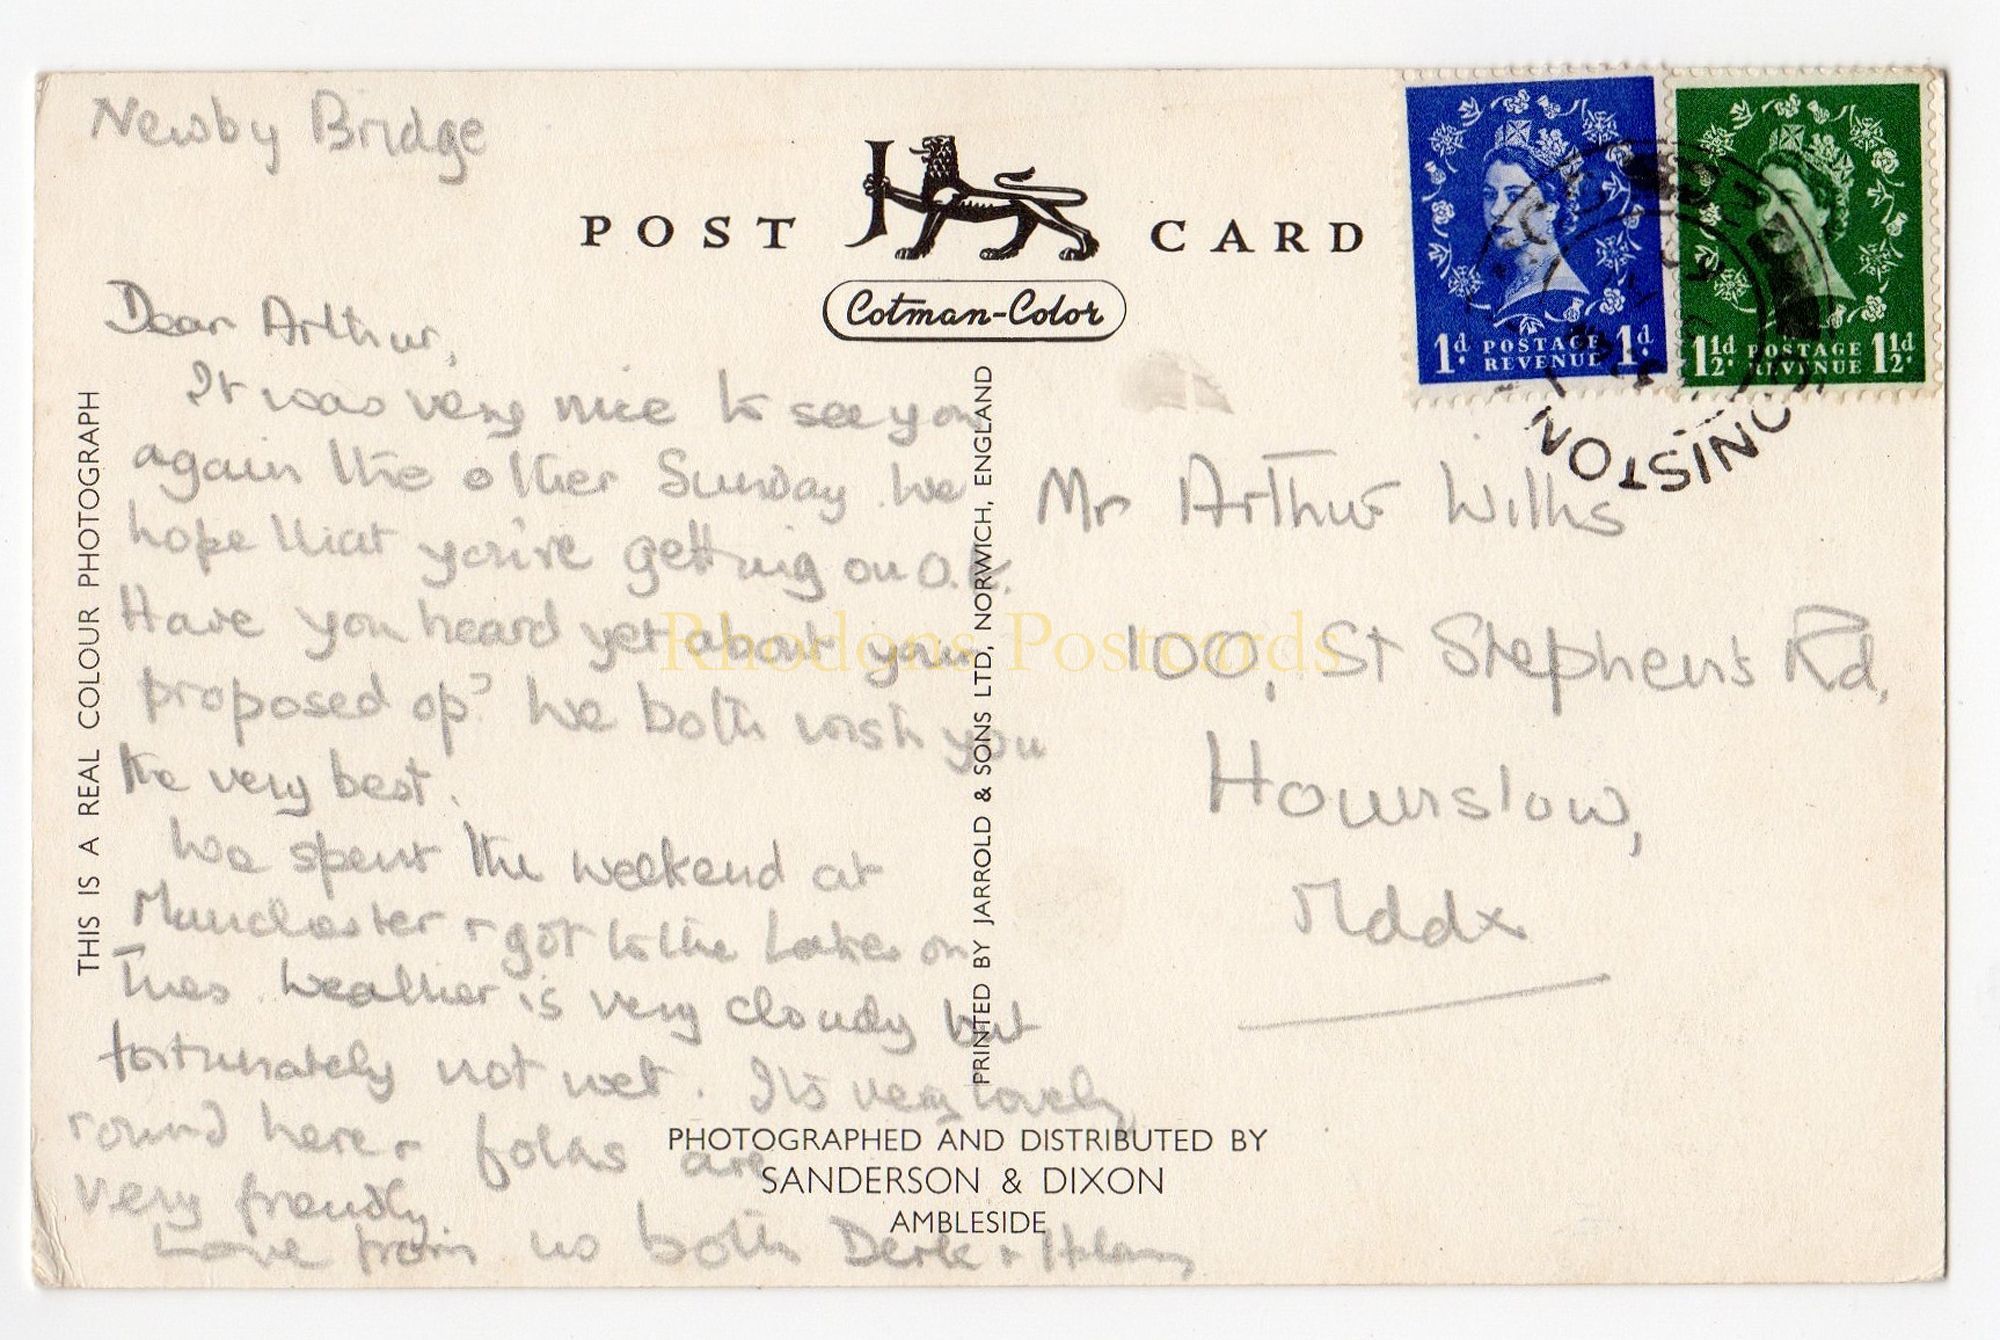 Newby Bridge
POST CARD
Cotman-Color
1d. POSTAGE REVENUE 1d.
1½d. POSTAGE REVENUE 1½d.
CONISTON
THIS IS A REAL COLOUR PHOTOGRAPH
Dear Arthur,
It was very nice to see you
again the other Sunday. We
hope that you're getting on O.K.
Have you heard yet about your
proposed op? We both wish you
the very best.
We spent the weekend at
Manchester + got to the Lakes on
Tues. Weather is very cloudy but
fortunately not wet. It's very lovely
round here + folks are
very friendly.
Love from us both Derek +
PRINTED BY JARROLD & SONS LTD, NORWICH, ENGLAND
Mr Arthur Wilks
100, St Stephen's Rd,
Hounslow,
Mddx
PHOTOGRAPHED AND DISTRIBUTED BY
SANDERSON & DIXON
AMBLESIDE
Rhodons Postcards